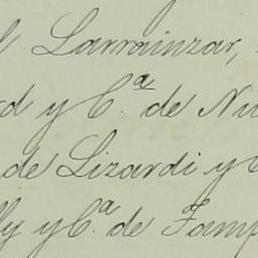 Larrainzar,
y C.ª de Nu
de Lizardi y C
y C.ª de Tamp